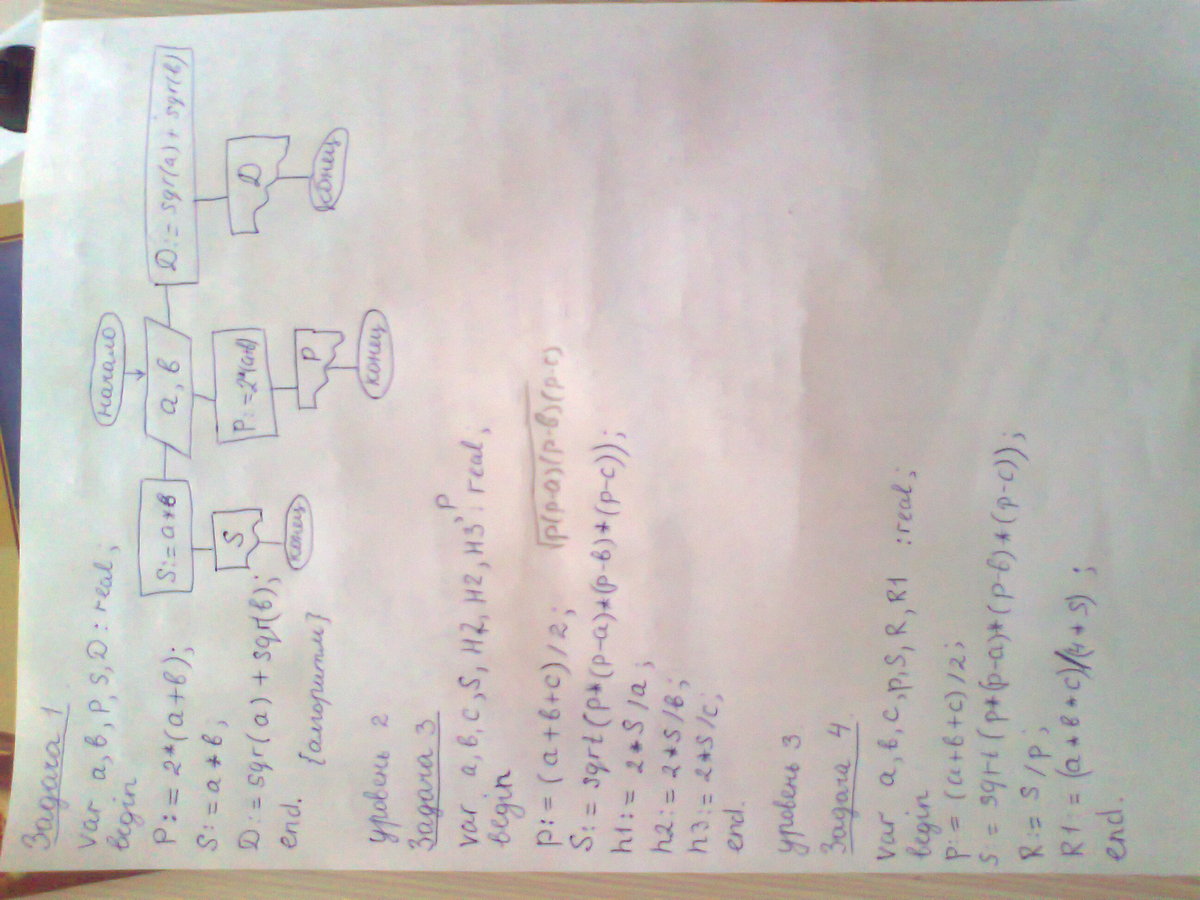 Задача 1
var a, в, P, S, D : real;
begin
P := 2*(a+в);
S := a*в;
D := sqr(a) + sqr(в);
end.
{алгоритм}
начало
a, в
S := a*в
S
конец
P := 2*(a+в)
P
конец
D := sqr(a) + sqr(в)
D
конец
уровень 2
Задача 3
var a, в, c, S, H2, H2, H3, P : real;
begin
p := (a+в+c)/2;
√p(p-a)(p-в)(p-c)
S := sqrt(p*(p-a)*(p-в)*(p-c));
h1 := 2*S/a;
h2 := 2*S/в;
h3 := 2*S/c;
end.
уровень 3
Задача 4
var a, в, c, p, S, R, R1 : real;
begin
p := (a+в+c)/2;
S := sqrt(p*(p-a)*(p-в)*(p-c));
R := S/p;
R1 := (a*в*c)/(4*S);
end.